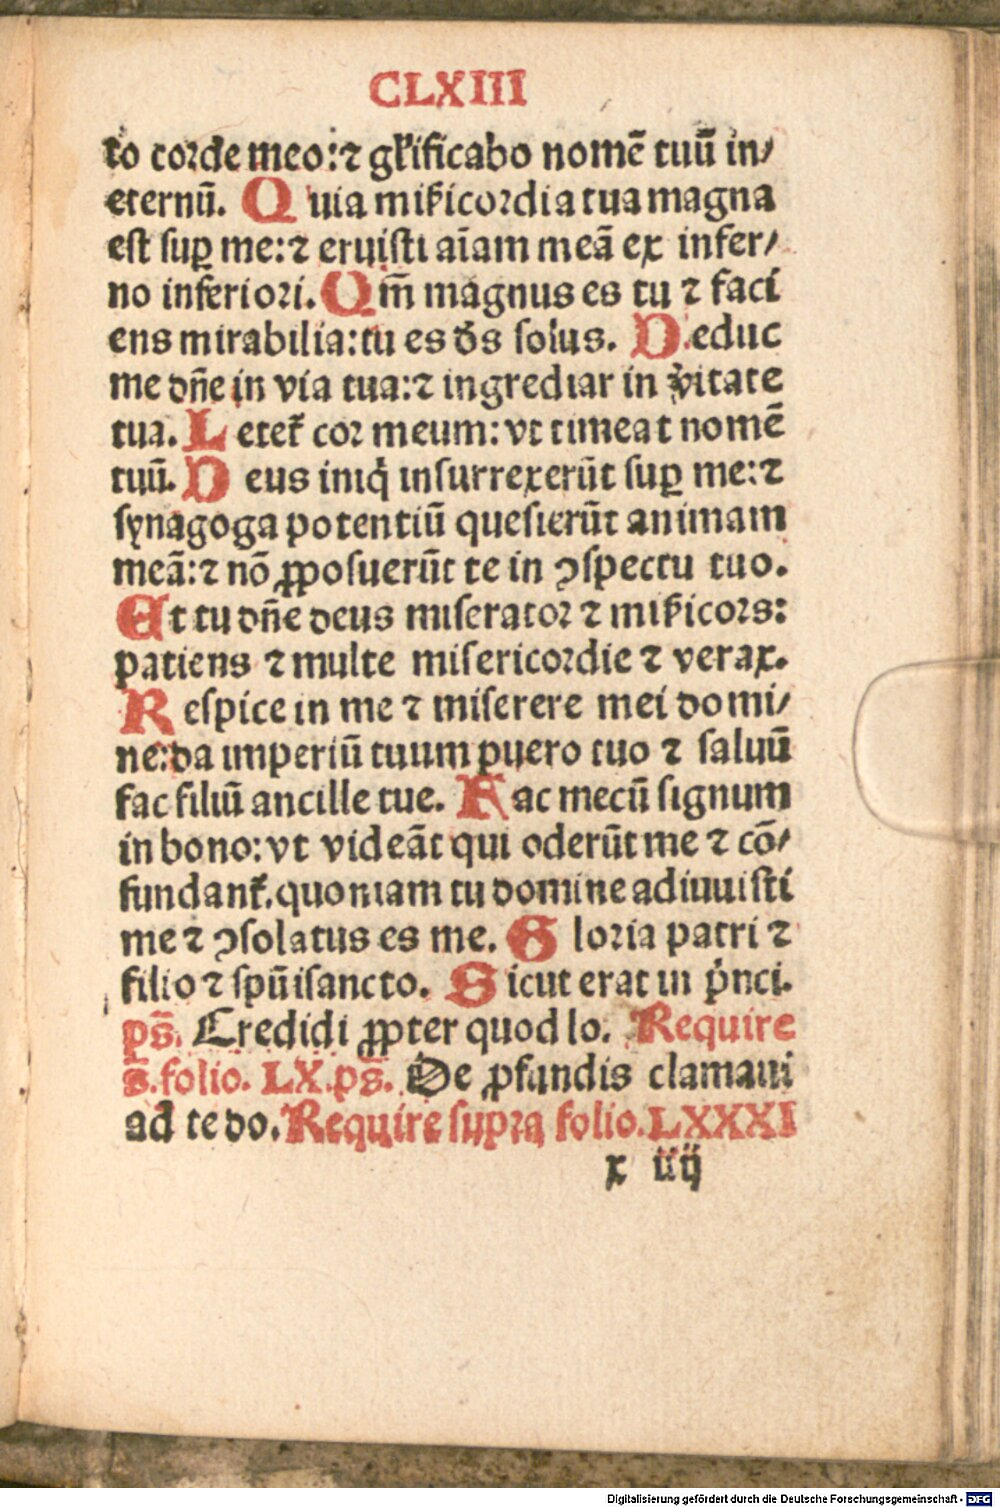 CLXIII
to corde meo:⁊ gl̄ificabo nomē tuū in/
eternū. Quia mīcordia tua magna
est suꝑ me:⁊ eruisti aīam meā ex infer/
no inferiori. Qm̄ magnus es tu ⁊ faci
ens mirabilia:tu es ds̄ solus. Deduc
me dn̄e in via tua:⁊ ingrediar in v̓itate
tua. Letet᷑ cor meum:vt timeat nomē
tuū. Deus iniq̓ insurrexerūt suꝑ me:⁊
synagoga potentiū quesierūt animam
meā:⁊ nō ꝓposuerūt te in ↄspectu tuo.
Et tu dn̄e deus miserator ⁊ mīcors:
patiens ⁊ multe misericordie ⁊ verax.
Respice in me ⁊ miserere mei domi/
ne:da imperiū tuum puero tuo ⁊ saluū
fac filiū ancille tue. Fac mecū signum
in bono:vt videāt qui oderūt me ⁊ cō/
fundant᷑.quoniam tu domine adiuuisti
me ⁊ ↄsolatus es me. Gloria patri ⁊
filio ⁊ spūisancto. Sicut erat in p̓nci.
ps̄. Credidi ꝓpter quod lo. Require
s̄.folio. LX.ps̄. De ꝓfundis clamaui
ad te do. Require supra folio.LXXXI
x iiij
Digitalisierung gefördert durch die Deutsche Forschungsgemeinschaft - DFG